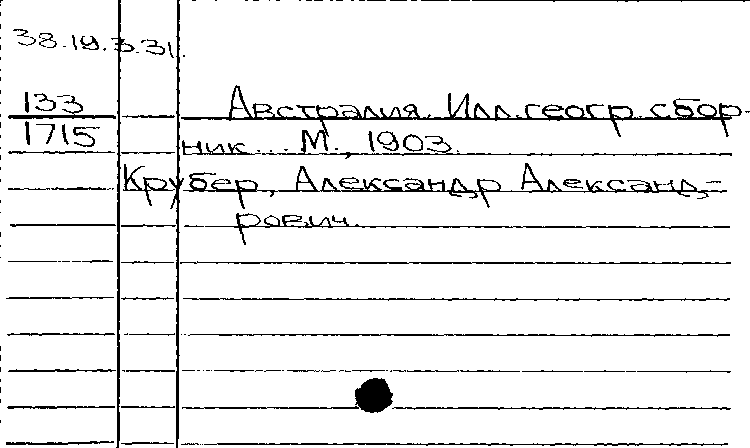 38.19.3.31.
133 Австралия. Илл. геогр. сбор-
1715 ник... М., 1903.
Крубер, Александр Александ-
рович.